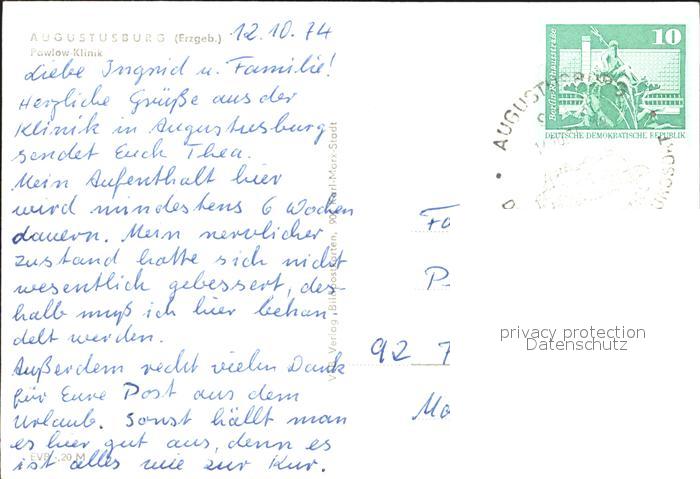 AUGUSTUSBURG (Erzgeb.) 12.10.74
Pawlow-Klinik
Liebe Ingrid u. Familie!
Herzliche Grüße aus der
Klinik in Augustusburg
sendet Euch Thea.
Mein Aufenthalt hier
wird mindestens 6 Wochen
dauern. Mein nervlicher
zustand hatte sich nicht
wesentlich gebessert, des-
halb muß ich hier behan
delt werden.
Außerdem recht vielen Dank
für Eure Post aus dem
Urlaub. Sonst hällt man
es hier gut aus, denn es
ist alles wie zur Kur.
EVP -,20 M
Verlag, Bildpostkarten, 90 Karl-Marx-Stadt
10
Berlin-Rathausstraße
DEUTSCHE DEMOKRATISCHE REPUBLIK
AUGUSTUSBURG
Fa
P
92 7
Mo
privacy protection
Datenschutz